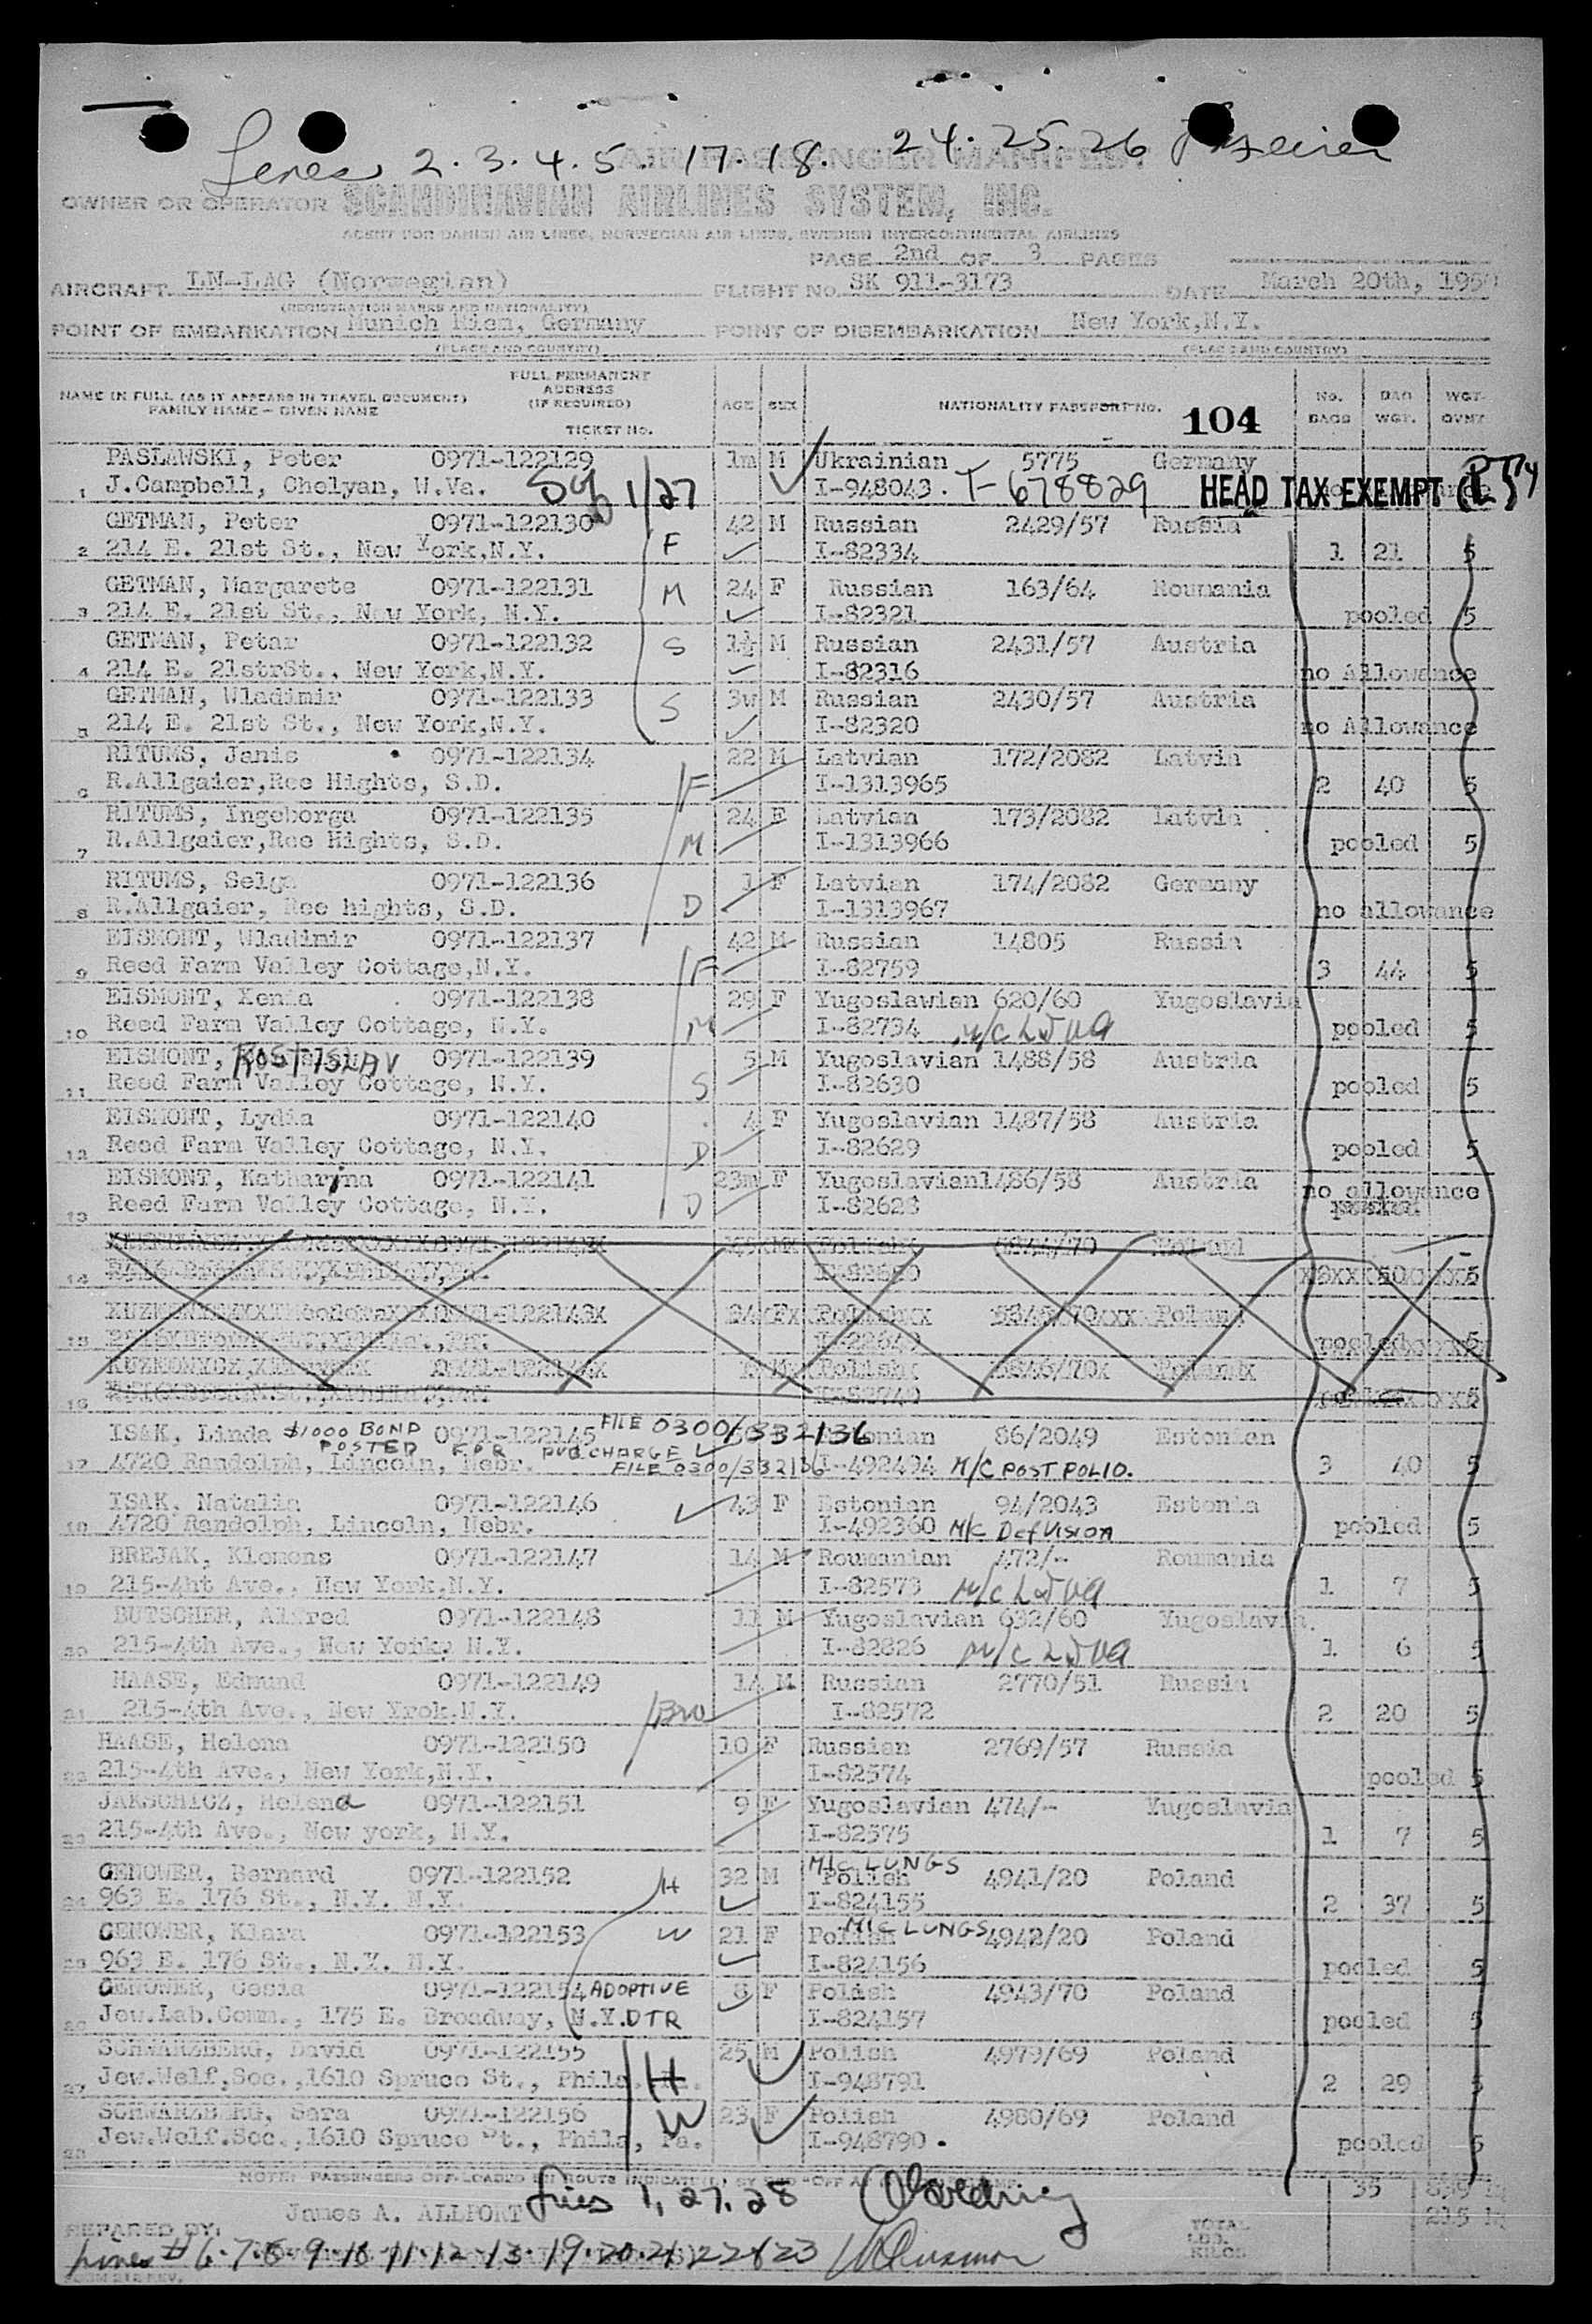 Lines 2.3.4.5.17.18. 24.25.26
AIR PASSENGER MANIFEST
OWNER OR OPERATOR SCANDINAVIAN AIRLINES SYSTEM, INC.
AGENT FOR DANISH AIR LINES, NORWEGIAN AIR LINES, SWEDISH INTERCONTINENTAL AIRLINES
PAGE 2nd OF 3 PAGES
AIRCRAFT LN-LAG (Norwegian) FLIGHT No. SK 911-3173 DATE March 20th, 1950
(REGISTRATION MARKS AND NATIONALITY)
POINT OF EMBARKATION Munich Riem, Germany POINT OF DISEMBARKATION New York,N.Y.
(PLACE AND COUNTRY) (PLACE AND COUNTRY)
NAME IN FULL (AS IT APPEARS IN TRAVEL DOCUMENT) FAMILY NAME - GIVEN NAME FULL PERMANENT ADDRESS (IF REQUIRED) TICKET No. AGE SEX NATIONALITY PASSPORT No. 104 No. BAGS BAG WGT. WGT. OVHT
PASLAWSKI, Peter 0971-122129 1m M Ukrainian 5775 Germany
1 J.Campbell, Chelyan, W.Va. 1/27 I-948043. T-678829 HEAD TAX EXEMPT
GETMAN, Peter 0971-122130 42 M Russian 2429/57 Russia
2 214 E. 21st St., New York,N.Y. F I-82334 1 21 5
GETMAN, Margarete 0971-122131 M 24 F Russian 163/64 Roumania
3 214 E. 21st St., New York, N.Y. I-82321 pooled 5
GETMAN, Petar 0971-122132 S 1½ M Russian 2431/57 Austria
4 214 E. 21strSt., New York,N.Y. I-82316 no Allowance
GETMAN, Wladimir 0971-122133 S 3w M Russian 2430/57 Austria
5 214 E. 21st St., New York,N.Y. I-82320 no Allowance
RITUMS, Janis 0971-122134 22 M Latvian 172/2082 Latvia
6 R.Allgaier,Ree Hights, S.D. F I-1313965 2 40 5
RITUMS, Ingeborga 0971-122135 24 F Latvian 173/2082 Latvia
7 R.Allgaier,Ree Hights, S.D. M I-1313966 pooled 5
RITUMS, Selga 0971-122136 1 F Latvian 174/2082 Germany
8 R.Allgaier, Ree hights, S.D. D I-1313967 no allowance
EISMONT, Wladimir 0971-122137 42 M Russian 14805 Russia
9 Reed Farm Valley Cottage,N.Y. F I-82759 3 44 5
EISMONT, Xenia 0971-122138 29 F Yugoslawian 620/60 Yugoslavia
10 Reed Farm Valley Cottage, N.Y. M I-82734 pooled 5
EISMONT, ROSTISLAV 0971-122139 5 M Yugoslavian 1488/58 Austria
11 Reed Farm Valley Cottage, N.Y. S I-82630 pooled 5
EISMONT, Lydia 0971-122140 4 F Yugoslavian 1487/58 Austria
12 Reed Farm Valley Cottage, N.Y. D I-82629 pooled 5
EISMONT, Katharina 0971-122141 23m F Yugoslavian1486/58 Austria no allowance
13 Reed Farm Valley Cottage, N.Y. D I-82628
14
15
16
ISAK, Linda $1000 BOND POSTED FOR PUB CHARGE 0971-122145 FILE 0300/332136 86/2049 Estonian
17 4720 Randolph, Lincoln, Nebr. FILE 0300/332136 I-492494 M/C POST POLIO. 3 40 5
ISAK. Natalia 0971-122146 43 F Estonian 94/2043 Estonia
18 4720 Randolph, Lincoln, Nebr. I-492360 M/C Def Vision pooled 5
BREJAK, Klemens 0971-122147 14 M Roumanian 472/- Roumania
19 215-4ht Ave., New York,N.Y. I-82573 1 7 5
BUTSCHER, Alfred 0971-122148 11 M Yugoslavian 632/60 Yugoslavia.
20 215-4th Ave., New York, N.Y. I-82826 1 6 5
HAASE, Edmund 0971-122149 14 M Russian 2770/51 Russia
21 215-4th Ave., New Yrok.N.Y. Bro I-82572 2 20 5
HAASE, Helena 0971-122150 10 F Russian 2769/57 Russia
22 215-4th Ave., New York,N.Y. I-82574 pooled 5
JAKSCHICZ, Helena 0971-122151 9 F Yugoslavian 474/- Yugoslavia
23 215-4th Ave., New york, N.Y. I-82575 1 7 5
GENOWER, Bernard 0971-122152 H 32 M M/C LUNGS Polish 4941/20 Poland
24 963 E. 176 St., N.Y. N.Y. I-824155 2 37 5
GENOWER, Klara 0971-122153 W 21 F Polish M/C LUNGS 4942/20 Poland
25 963 E. 176 St., N.Y. N.Y. I-824156 pooled 5
GENOWER, Gesia 0971-122154 ADOPTIVE 8 F Polish 4943/70 Poland
26 Jew.Lab.Comm., 175 E. Broadway, N.Y. DTR I-824157 pooled 5
SCHWARZBERG, David 0971-122155 25 M Polish 4979/69 Poland
27 Jew.Welf.Soc.,1610 Spruce St., Phila. H I-948791 2 29 5
SCHWARZBERG, Sara 0971-122156 W 23 F Polish 4980/69 Poland
28 Jew.Welf.Soc.,1610 Spruce St., Phila, Pa. I-948790. pooled 5
NOTE: PASSENGERS OFF-LOADED EN ROUTE INDICATED BY
lines 1, 27, 28
James A. ALLPORT 35
PREPARED BY: TOTAL LBS. KILOS 215
Lines # 6.7.8.9.10.11.12.13.19.20.21 22 & 23